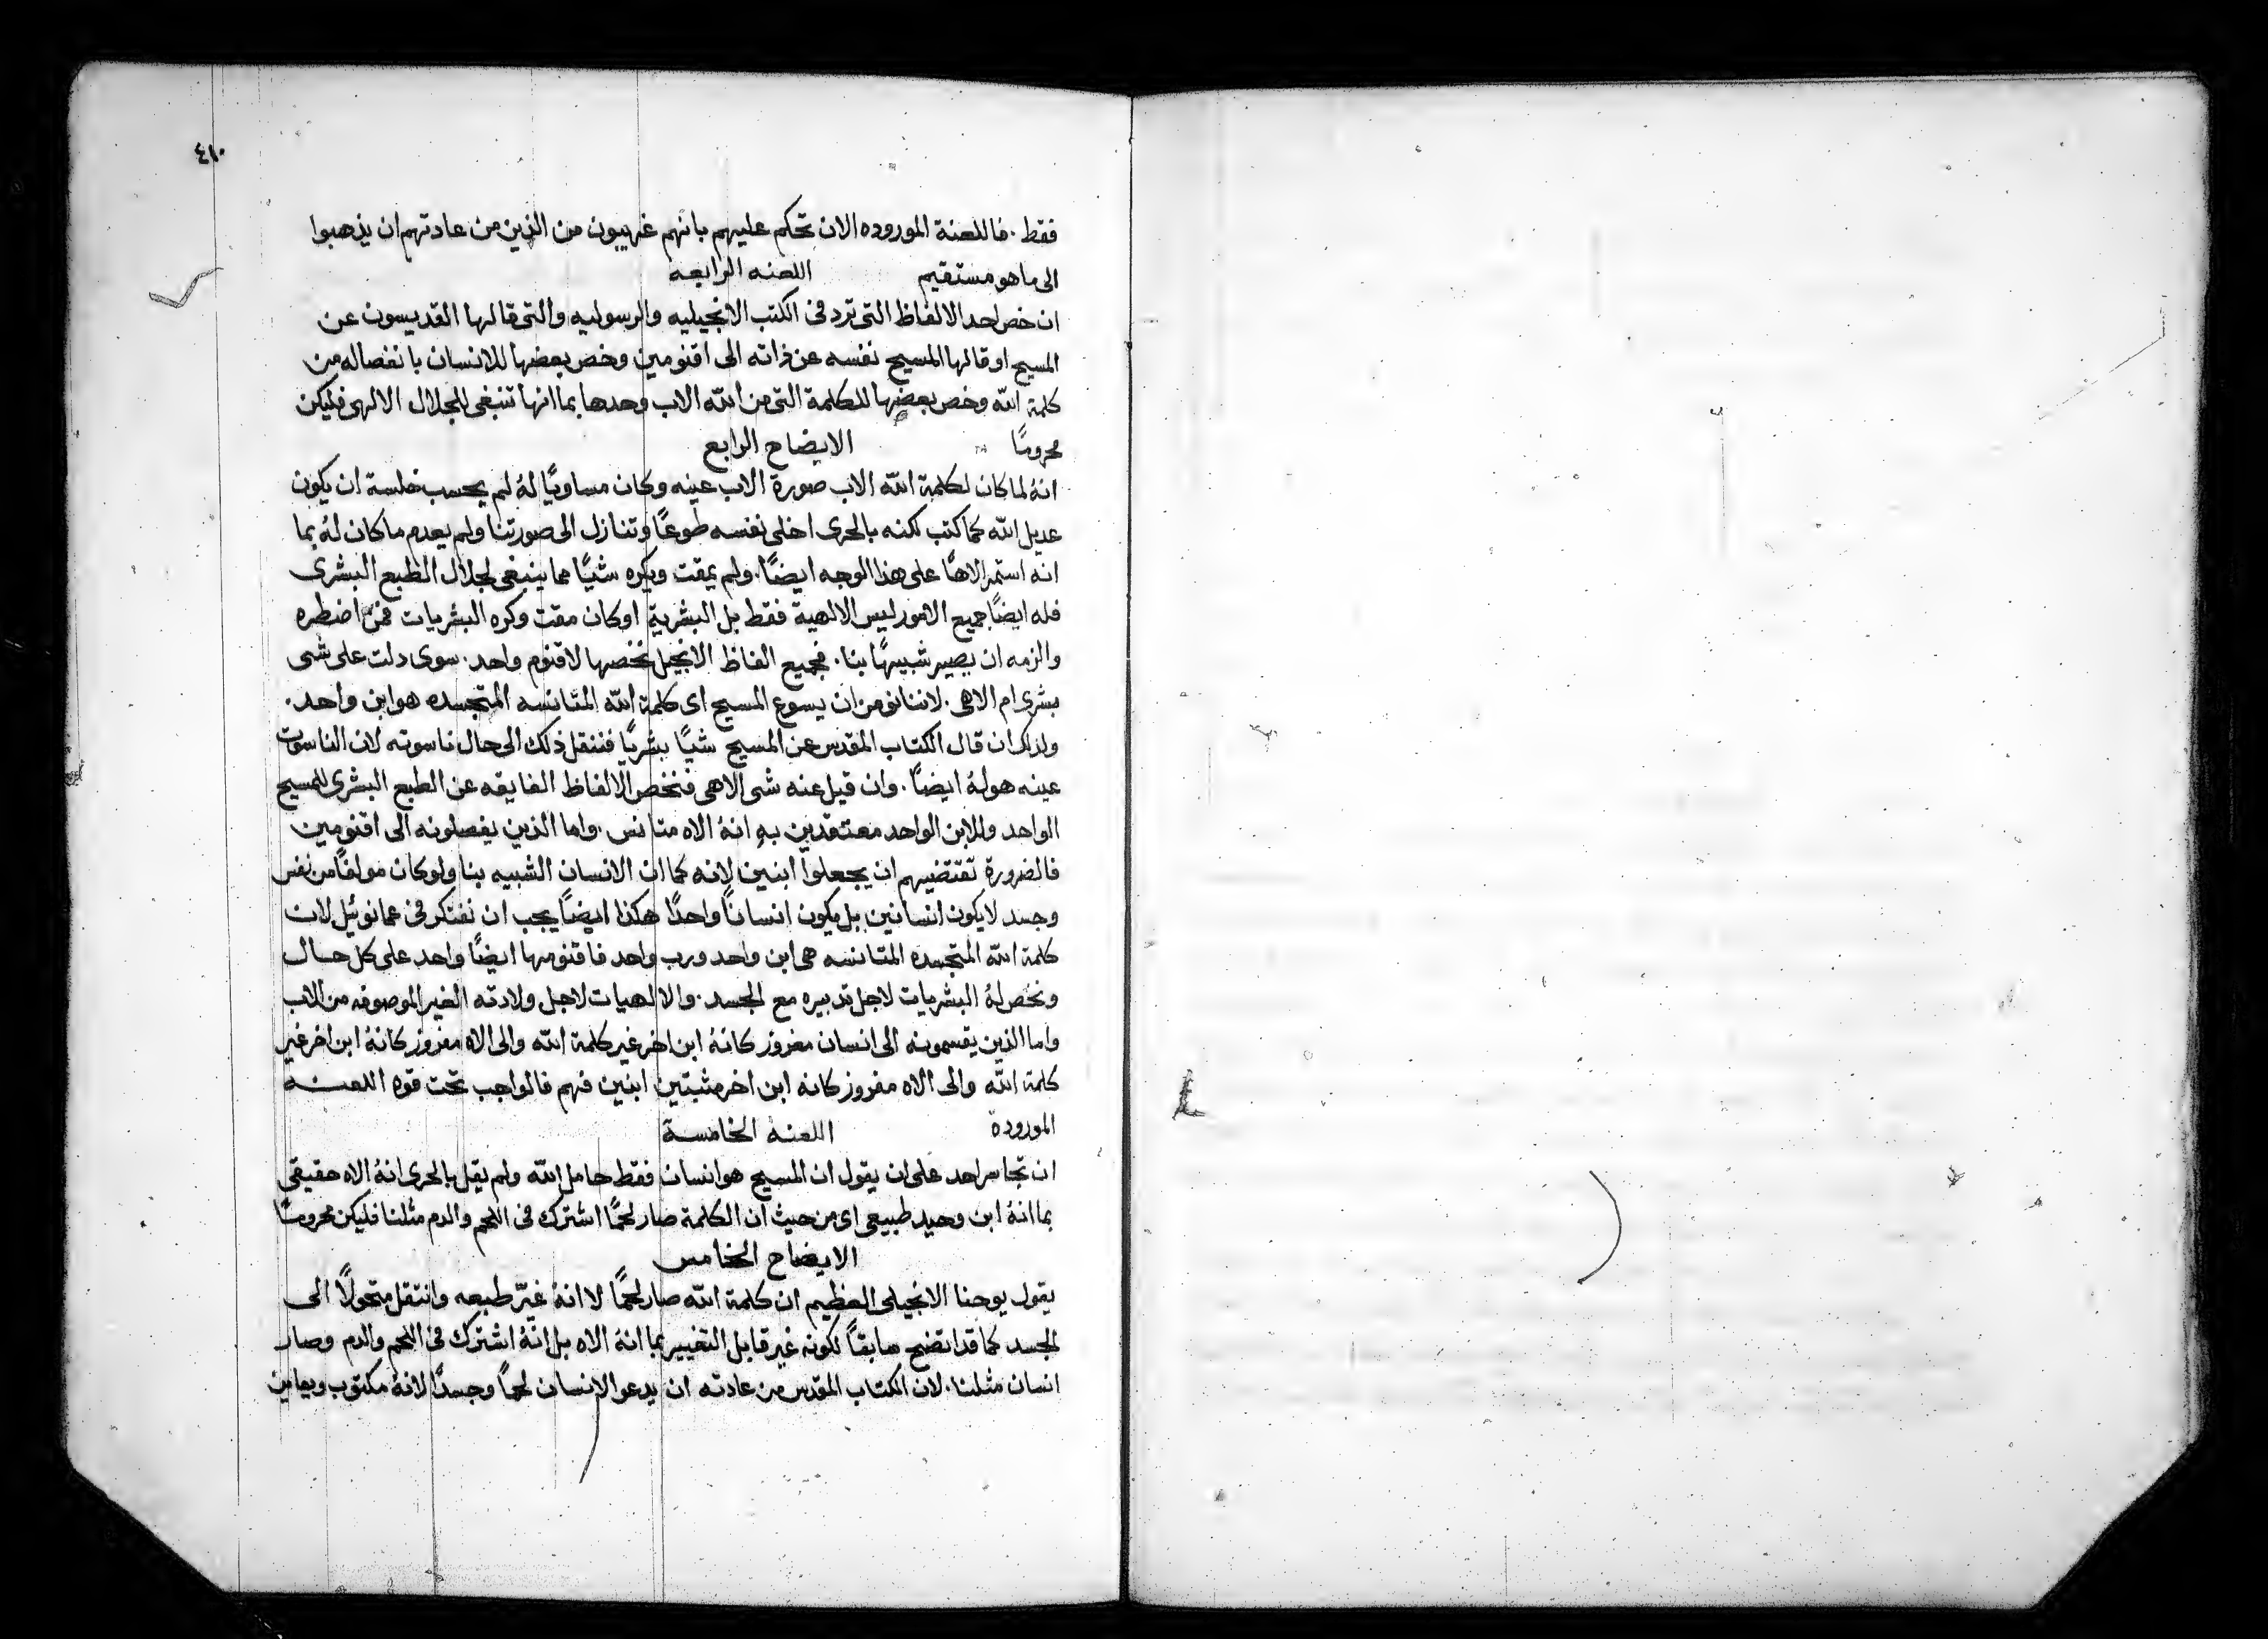 ٤١٠
فقط. فاللعنة الموروده الان تحكم عليهم بانهم غريبون من الذين من عادتهم ان يذهبوا
الى ما هو مستقيم اللعنه الرابعه
ان خص احد الالفاظ التى ترد فى الكتب الانجيليه والرسوليه والتى قالها القديسون عن
المسيح او قالها المسيح نفسه عن ذاته الى اقنومين وخص بعضها للانسان بانفصاله من
كلمة الله وخص بعضها للكلمة التى من الله الاب وحدها بما انها تنبغى للجلال الالهى فليكن
محرومًا الايضاح الرابع
انهُ لما كان لكلمة الله الاب صورة الاب عينه وكان مساويًا لهُ لم يحسب خلسة ان يكون
عديل الله كما كتب لكنه بالحرى اخلى نفسه طوعًا وتنازل الى صورتنا ولم يعدم ما كان لهُ بما
انه استمر الاهًا على هذا الوجه ايضًا. ولم يمقت ويكره شيًا مما ينبغى لجلال الطبع البشرى
فله ايضًا جميع الامور ليس الالهية فقط بل البشرية او كان مقت وكره البشريات فمن اضطره
والزمه ان يصير شبيهًا بنا. فجميع الفاظ الانجيل نخصها لاقنوم واحد. سوى دلت على شى
بشرى ام الاهى. لاننا نومن ان يسوع المسيح اى كلمة الله المتانسه المتجسده هو ابن واحد.
ولذلك ان قال الكتاب المقدس عن المسيح شيًا بشريًا فننقل ذلك الى حال ناسوته لان الناسوت
عينه هو لهُ ايضًا. وان قيل عنه شى الاهى فنخص الالفاظ الفايقه عن الطبع البشرى للمسيح
الواحد وللابن الواحد معتقدين بهِ انهُ الاه متانس. واما الذين يفصلونه الى اقنومين
فالضرورة تقتضيهم ان يجعلوا ابنين لانه كما ان الانسان الشبيه بنا ولو كان مولفًا من نفس
وجسد لا يكون انسانين بل يكون انسانًا واحدًا هكذا ايضًا يجب ان نفتكر فى عمانوئيل لان
كلمة الله المتجسده المتانسه هى ابن واحد ورب واحد فاقنومها ايضًا واحد على كل حال
ونخص لهُ البشريات لاجل تدبيره مع الجسد. والالهيات لاجل ولادته الغير الموصوفه من الاب
واما الذين يقسمونه الى انسان مفروز كانهُ ابن اخر غير كلمة الله والى الاه مفروز كانهُ ابن اخر غير
كلمة الله والى الاه مفروز كانه ابن اخر مثبتين ابنين فهم فالواجب تحت قوه اللعنه
المورودة اللعنه الخامسة
ان تجاسر احد على ان يقول ان المسيح هو انسان فقط حامل الله ولم يقل بالحرى انهُ الاه حقيقى
بما انهُ ابن وحيد طبيعى اى من حيث ان الكلمة صار لحمًا اشترك فى اللحم والدم مثلنا فليكن محرومًا
الايضاح الخامس
يقول يوحنا الانجيلى العظيم ان كلمة الله صار لحمًا لا انهُ غيّر طبعه وانتقل متحولًا الى
الجسد كما قد اتضح سابقًا لكونه غير قابل التغيير بما انهُ الاه بل انّهُ اشترك فى اللحم والدم وصار
انسان مثلنا. لان الكتاب المقدس من عادته ان يدعو الانسان لحمًا وجسدًا لانهُ مكتوب ويعاين